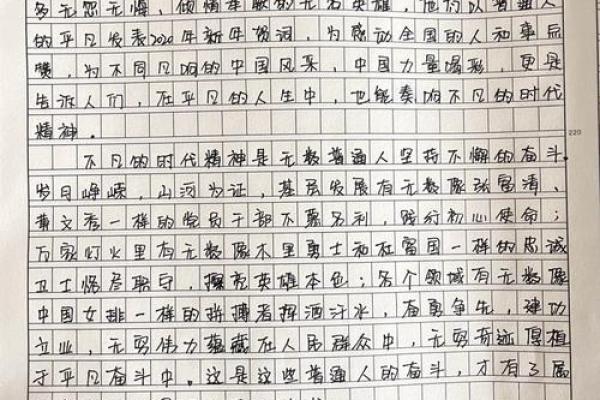 多无怨无悔、倾情奉献的无名英雄,他们以普通人
的平凡发表2020年新年贺词,为感动全国的人和事后
赞,为不同凡响的中国风采、中国力量喝彩,更是
告诉人们,在平凡的人生中,也能奏响不凡的时代
精神。
220
不凡的时代精神是无数普通人坚持不懈的奋斗。
岁月峥嵘,山河为证,基层发展有无数像张富清、
黄文秀一样的党员干部不慕名利,践行初心使命;
万家灯火里有无数像木里勇士和杜富国一样的忠诚
卫士恪尽职守,擦亮英雄本色;各个领域有无数像
中国女排一样的拼搏者挥洒汗水,奋勇争先,建功
立业,无穷伟力蕴藏在人民群众中,无穷奇迹厚植
于平凡奋斗中。这是这些普通人的奋斗,才有了属